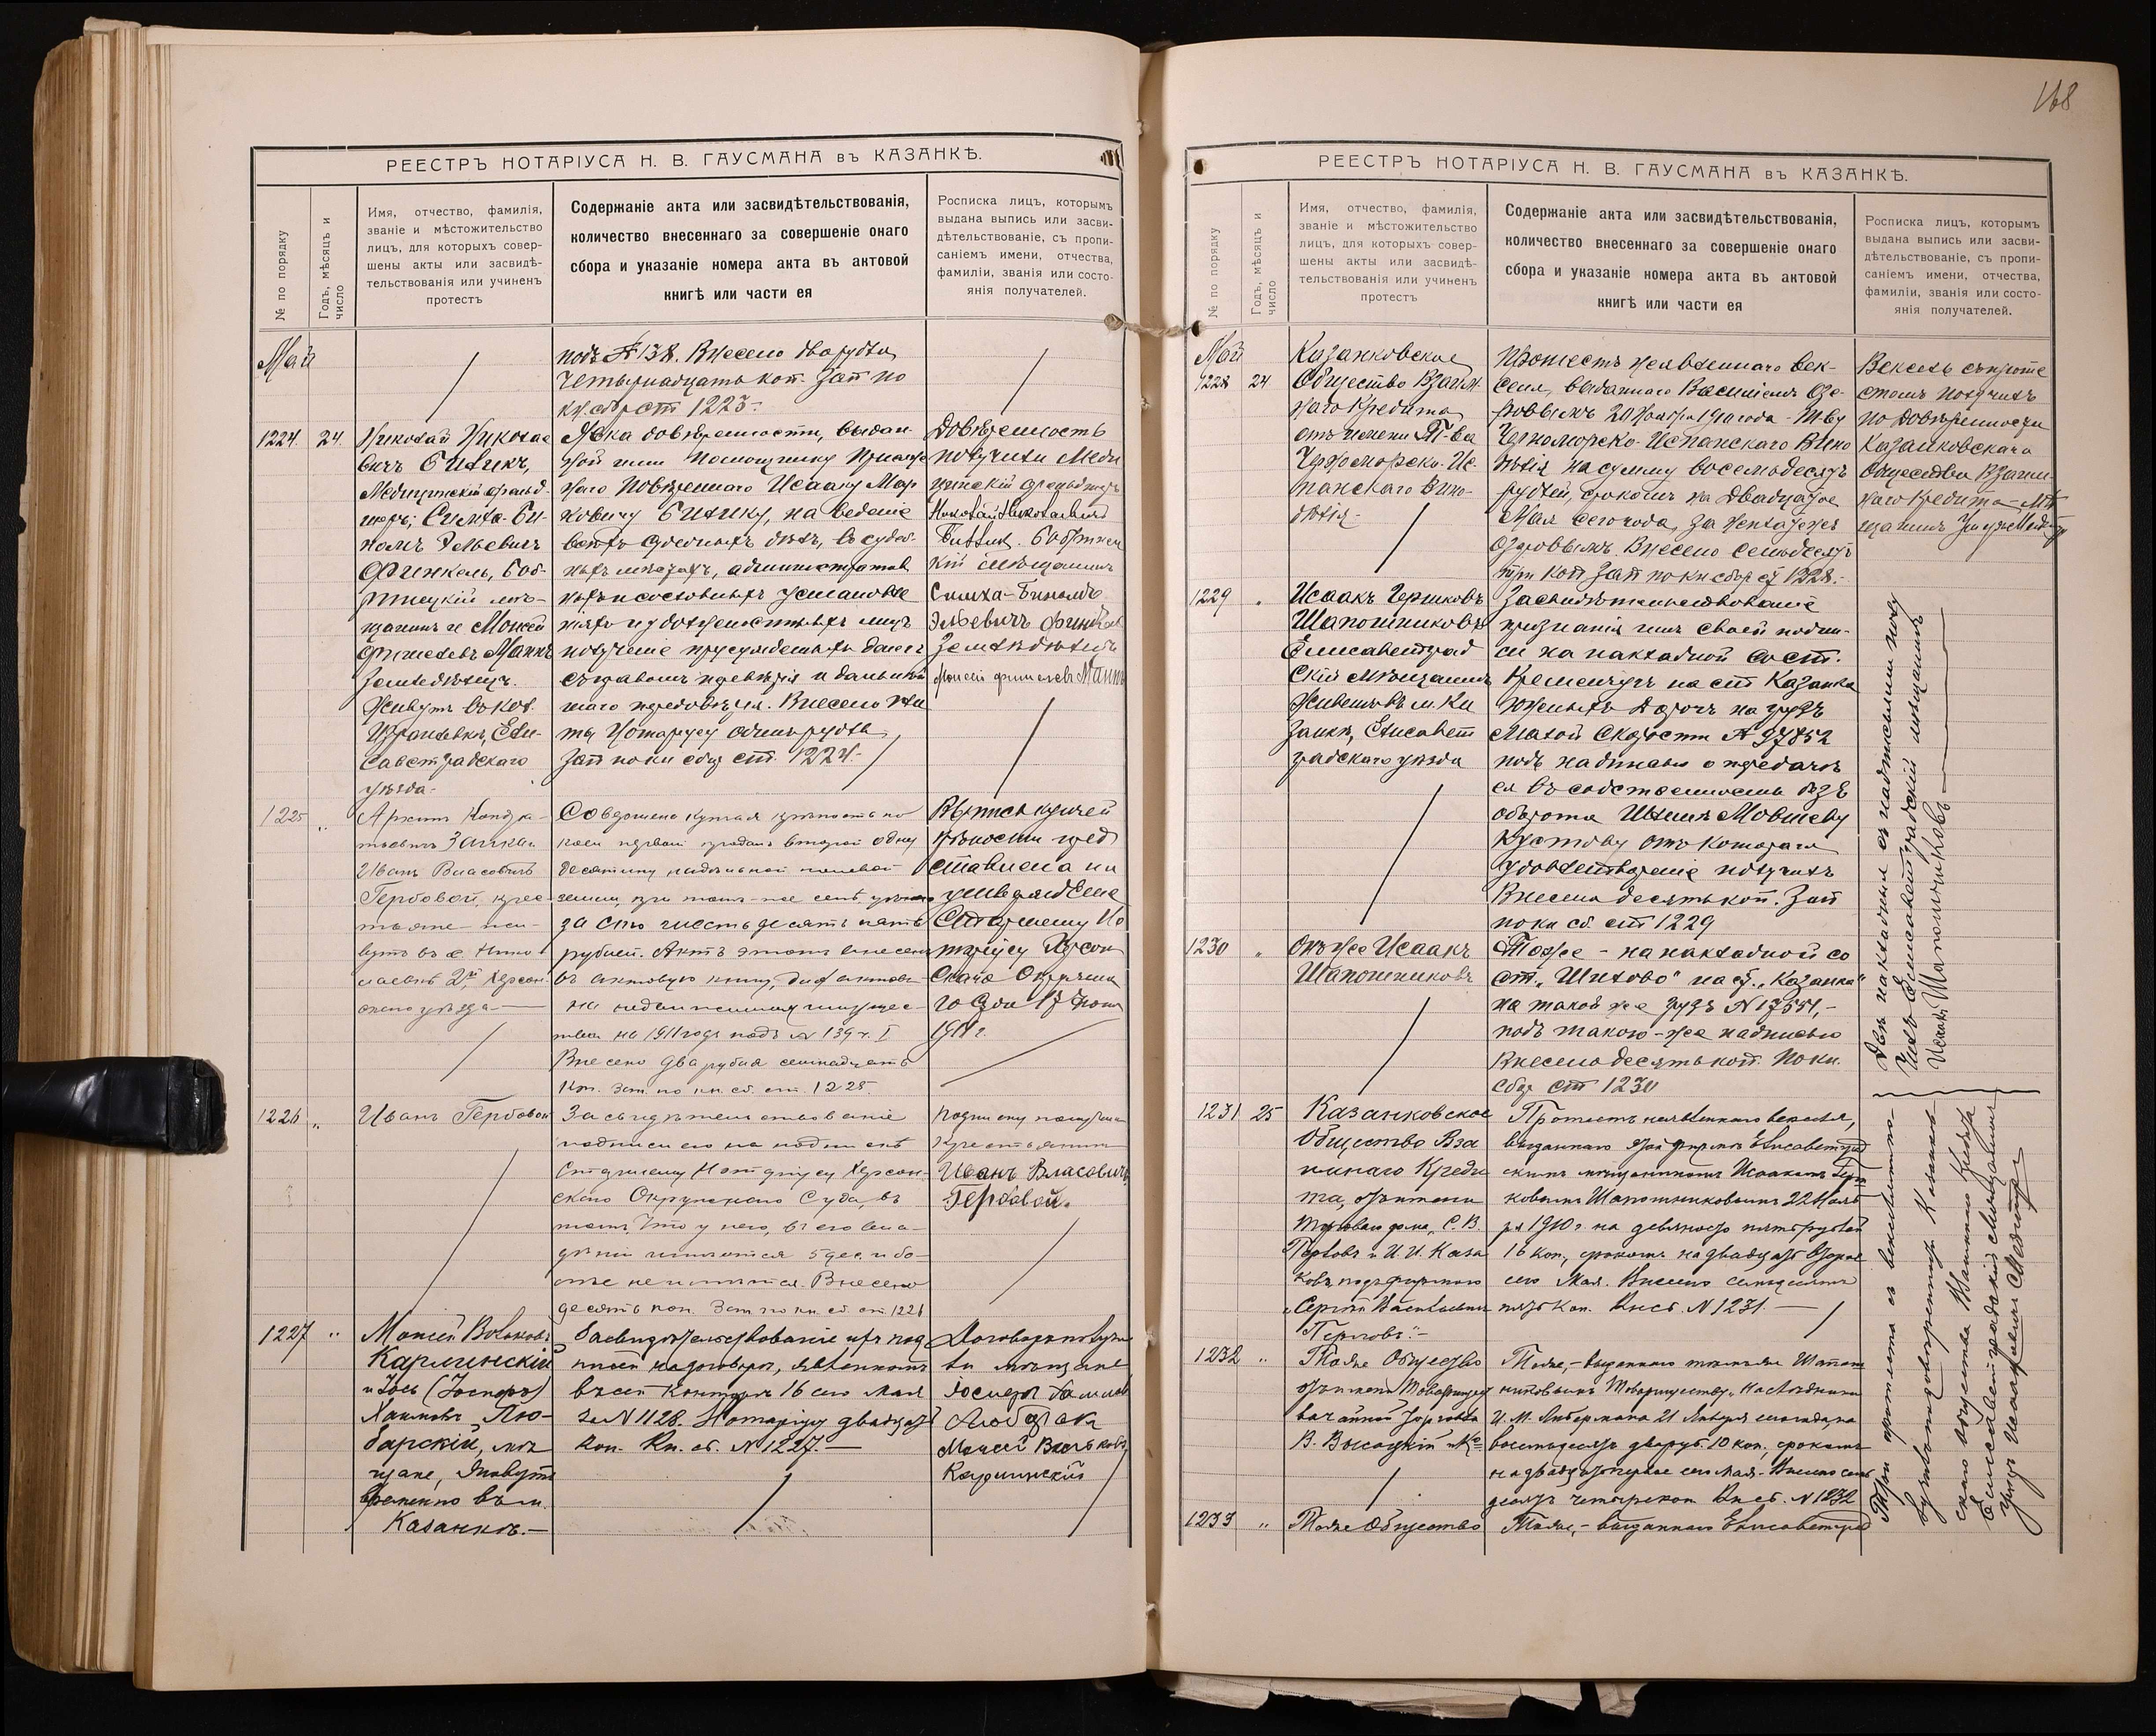 РЕЕСТРЪ НОТАРІУСА Н. В. ГАУСМАНА въ КАЗАНКѢ.
№ по порядку
Годъ, мѣсяцъ и
число
Имя, отчество, фамилія,
званіе и мѣстожительство
лицъ, для которыхъ совер-
шены акты или засвидѣ-
тельствованія или учиненъ
протестъ
Содержаніе акта или засвидѣтельствованія,
количество внесеннаго за совершеніе онаго
сбора и указаніе номера акта въ актовой
книгѣ или части ея
Росписка лицъ, которымъ
выдана выпись или засви-
дѣтельствованіе, съ пропи-
саніемъ имени, отчества,
фамиліи, званія или состо-
янія получателей.
Май
подъ № 138. Внесено два рубля
четырнадцать коп. Зап по
кн. сбор ст 1223.-
1224. 24.
Николай Николае
вичъ Битикъ,
Медицинскій фельд-
шеръ; Симха-Би-
номъ Эльевичъ
Финкель, Боб-
ринецкій мѣ-
щанинъ и Моисей
Фишелевъ Манъ
Земледѣлецъ.
Живутъ въ кол.
Израилевкѣ, Ели-
саветградскаго
уѣзда.-
Явка довѣренности, выдан-
ной ими Помощнику Присяж
наго Повѣреннаго Исааку Мар
ковичу Битику, на веденіе
всѣхъ судебныхъ дѣлъ, въ судеб-
ныхъ мѣстахъ, административ
ныхъ и сословныхъ установле
ніяхъ и у должностныхъ лицъ
полученіе присужденныхъ денегъ
съ правомъ передовѣрія и дальнѣй
шаго передовѣрія. Внесено пла
ты Нотаріусу одинъ рубль
Зап по кн сбор ст. 1224.-
Довѣренность
получили Меди
цинскій фельдшеръ
Николай Николаевичъ
Битик. Бобринец
кій мѣщанинъ
Симха-Биномъ
Эльевичъ Финкель
Земледѣлецъ
Моисей Фишелевъ Манъ
1225 „
Архипъ Кондра-
тьевичъ Заика и
Иванъ Власовичъ
Гербовой, крес-
тьяне жи-
вутъ въ с. Нико
лаевкѣ 2й, Херсон.
скаго уѣзда-
Совершена купчая крѣпость по
коей первый продалъ второй одну
десятину надѣльной полевой
земли, при томъ-же селѣ
за сто шестьдесятъ пять
рублей. Актъ этотъ внесенъ
въ актовую книгу, для актовъ
на недвижимыя имущес-
тва на 1911 годъ подъ № 139 ч. I
Внесено два рубля семнадцать
коп. Зап. по кн. сб. ст. 1225.
Выпись купчей
крѣпости пред
ставлена на
утвержденіе
Старшему Но
таріусу Херсон
скаго Окружна
го Суда 17 Іюня
1911 г.
1226 „
Иванъ Гербовой
Засвидѣтельствованіе
подписи его на подпискѣ
Старшему Нотаріусу Херсон-
скаго Окружнаго Суда, въ
томъ, что у него, въ его вла-
дѣніи имѣются 5 дес. и бо-
лѣе не имѣется. Внесено
десять коп. Зап. по кн. сб. ст. 1226
Подписку получилъ
крестьянинъ
Иванъ Власовичъ
Гербовой.
1227 „
Моисей Вольковъ
Карлинскій
и Іось (Іосифъ)
Хаимовъ Лю-
барскій, мѣ
щане, живутъ
временно въ м.
Казанкѣ.-
Засвидѣтельствованіе ихъ под
писей на договорѣ, явленномъ
въ сей конторѣ 16 сего Мая
за N 1128. Нотаріусу двадцать
коп. Кн. сб. N 1227.-
Договоръ получи
ли мѣщане
Іосифъ Хаимов
Любарски
Моисей Вольковъ
Карлинскій
168
РЕЕСТРЪ НОТАРІУСА Н. В. ГАУСМАНА въ КАЗАНКѢ.
№ по порядку
Годъ, мѣсяцъ и
число
Имя, отчество, фамилія,
званіе и мѣстожительство
лицъ, для которыхъ совер-
шены акты или засвидѣ-
тельствованія или учиненъ
протестъ
Содержаніе акта или засвидѣтельствованія,
количество внесеннаго за совершеніе онаго
сбора и указаніе номера акта въ актовой
книгѣ или части ея
Росписка лицъ, которымъ
выдана выпись или засви-
дѣтельствованіе, съ пропи-
саніемъ имени, отчества,
фамиліи, званія или состо-
янія получателей.
Май
1228 24
Казанковское
Общество Взаим-
наго Кредита
отъ имени Т-ва
Черноморско-Ис-
панскаго Вино-
дѣлія-
Протестъ неявленнаго век-
селя, выданнаго Василіемъ Озе-
ровымъ 20 Ноября 1910 года Т-ву
Черноморско-Испанскаго Вино
дѣлія на сумму восемьдесятъ
рублей, срокомъ на двадцатое
Мая сего года, за неплатежъ
Озеровымъ. Внесено семьдесятъ
три коп Зап по кн сбор ст 1228.-
Вексель съ проте
стомъ получилъ
по довѣренности
Казанковскаго
Общества Взаим
наго Кредита - Мѣ
щанинъ
1229 „
Исаакъ Гершковъ
Шапошниковъ
Елисаветград
скій мѣщанинъ
Живетъ въ м. Ка
занкѣ, Елисавет
градскаго уѣзда
Засвидѣтельствованіе
признанія имъ своей подпи-
си на накладной со ст.
Кременчугъ на ст Казанка
Южныхъ Дорогъ на грузъ
Малой Скорости № 97852
подъ надписью о передачѣ
ея въ собственность безъ
оборота Шлемѣ Мовшеву
отъ котораго
удовлетвореніе получилъ
Внесено десять коп. Зап
по кн сб. ст 1229
1230 „
Онъ же Исаакъ
Шапошниковъ
Тоже - на накладной со
ст. „Шитово" на ст. „Казанка"
на такой же грузъ N 17551,-
подъ такою-же надписью
Внесено десять коп. По кн.
сбор ст 1230
Двѣ накладныя съ надписями полу
чилъ Елисаветградскій мѣщанинъ
Исаакъ Шапошниковъ
1231. 25
Казанковское
Общество Вза
имнаго Креди
та, отъ имени
торговаго дома „С. В.
Перловъ и И. И. Каза
ковъ подъ фирмою
„Сергѣй Васильевичъ
Перловъ".-
Протестъ неявленнаго векселя,
выданнаго Елисаветград
скимъ мѣщаниномъ Исаакомъ Герш
ковымъ Шапошниковымъ 22 Нояб
ря 1910 г. на девяносто пять рублей
16 коп., срокомъ на двадцать второе
сего Мая. Внесено семьдесятъ
пять коп. Кн сб. N 1231.-
1232 „
Тоже Общество
отъ имени Товарищества
чайной торговли
В. Высоцкій и Ко
Тоже,- выданнаго тѣмъ же Шапош
никовымъ Товариществу „Наслѣдники
И. М. Либермана 21 Января сего года, на
восемьдесятъ два руб. 10 коп., срокомъ
на двадцать первое сего Мая.- Внесено семь
десятъ четыре коп. Кн сб. N 1232
1233 „
Тоже Общество
Тоже,- выданнаго Елисаветград
Три протеста съ векселями по-
лучилъ по довѣренности Казанков-
скаго Общества Взаимнаго Кредита
Елисаветградскій Мѣщанинъ